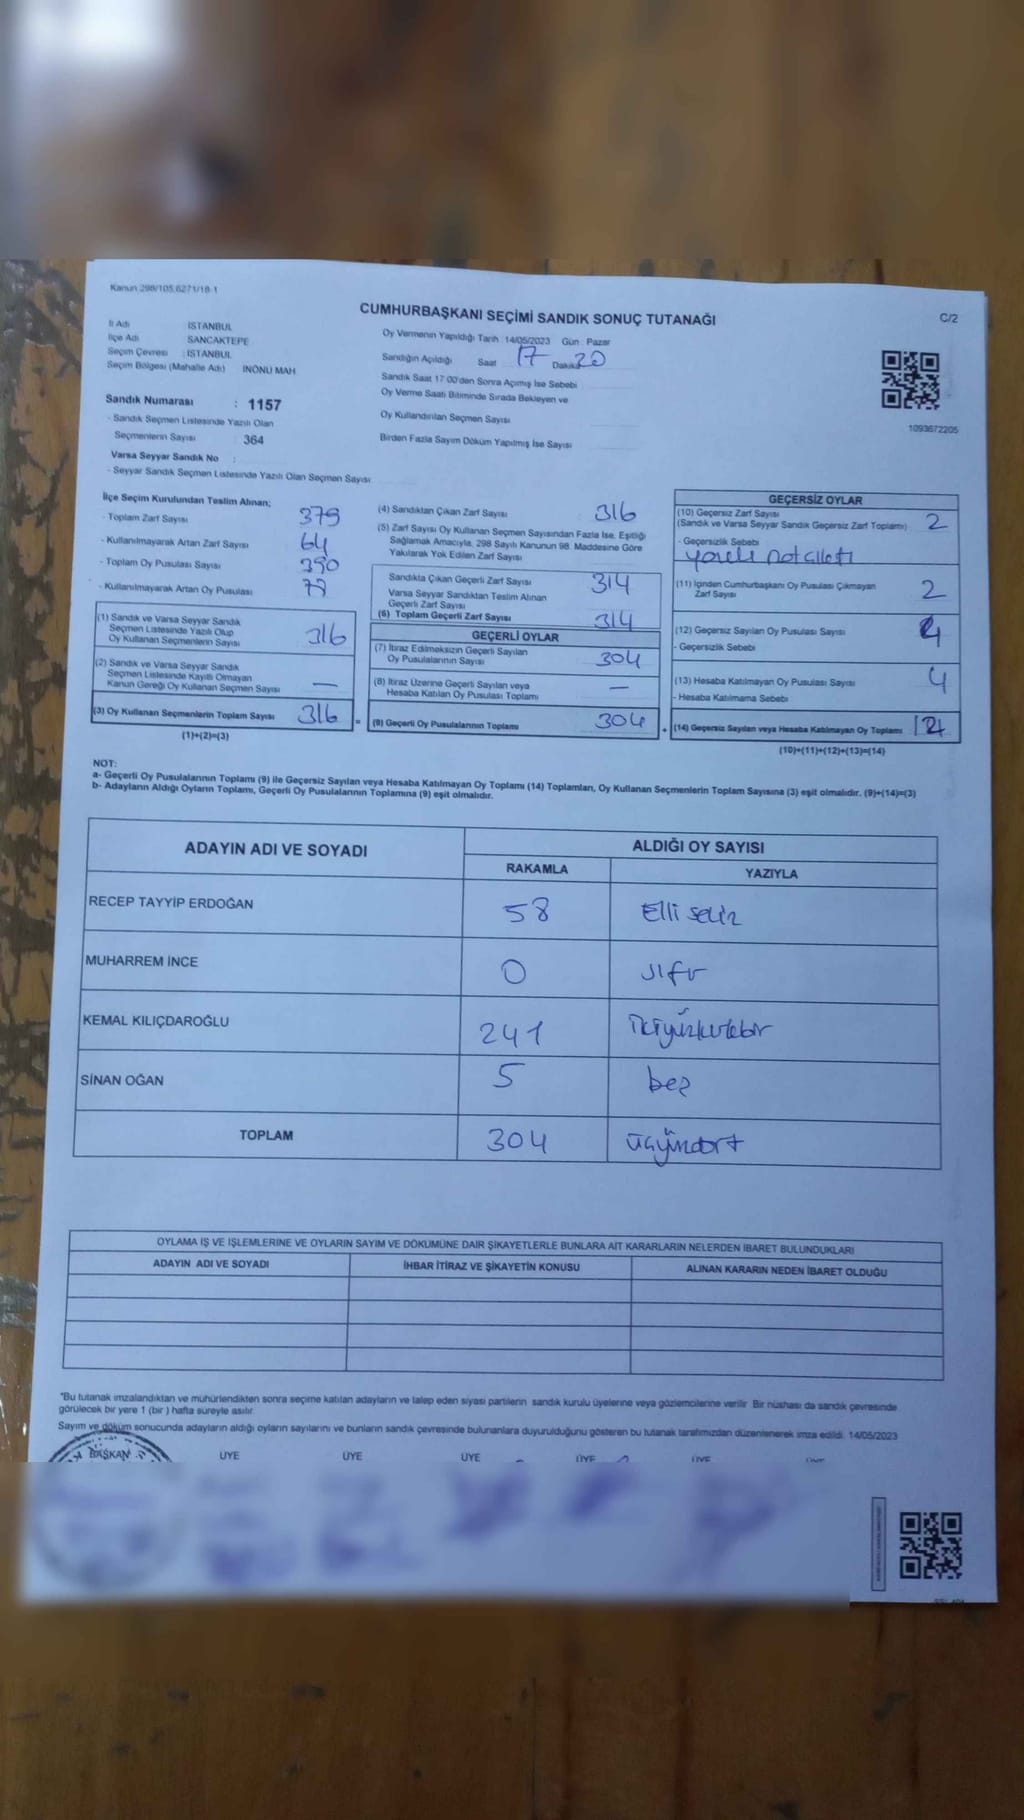 Kanun 298/105,6271/18-1
CUMHURBAŞKANI SEÇİMİ SANDIK SONUÇ TUTANAĞI
C/2
İl Adı İSTANBUL
İlçe Adı SANCAKTEPE
Seçim Çevresi : İSTANBUL
Seçim Bölgesi (Mahalle Adı) İNÖNÜ MAH
Sandık Numarası : 1157
- Sandık Seçmen Listesinde Yazılı Olan
Seçmenlerin Sayısı 364
Varsa Seyyar Sandık No :
- Seyyar Sandık Seçmen Listesinde Yazılı Olan Seçmen Sayısı
Oy Vermenin Yapıldığı Tarih 14/05/2023 Gün : Pazar
Sandığın Açıldığı Saat 17 Dakika 20
Sandık Saat 17:00'den Sonra Açımış İse Sebebi
Oy Verme Saati Bitiminde Sırada Bekleyen ve
Oy Kullandırılan Seçmen Sayısı
Birden Fazla Sayım Döküm Yapılmış İse Sayısı
1093672205
İlçe Seçim Kurulundan Teslim Alınan;
- Toplam Zarf Sayısı 379
- Kullanılmayarak Artan Zarf Sayısı 64
- Toplam Oy Pusulası Sayısı 390
- Kullanılmayarak Artan Oy Pusulası
(1) Sandık ve Varsa Seyyar Sandık
Seçmen Listesinde Yazılı Olup
Oy Kullanan Seçmenlerin Sayısı 316
(2) Sandık ve Varsa Seyyar Sandık
Seçmen Listesinde Kayıtlı Olmayan
Kanun Gereği Oy Kullanan Seçmen Sayısı —
(3) Oy Kullanan Seçmenlerin Toplam Sayısı 316 =
(1)+(2)=(3)
(4) Sandıktan Çıkan Zarf Sayısı 316
(5) Zarf Sayısı Oy Kullanan Seçmen Sayısından Fazla İse, Eşitliği
Sağlamak Amacıyla, 298 Sayılı Kanunun 98. Maddesine Göre
Yakılarak Yok Edilen Zarf Sayısı
Sandıkta Çıkan Geçerli Zarf Sayısı 314
Varsa Seyyar Sandıktan Teslim Alınan
Geçerli Zarf Sayısı
(6) Toplam Geçerli Zarf Sayısı 314
GEÇERLİ OYLAR
(7) İtiraz Edilmeksizin Geçerli Sayılan
Oy Pusulalarının Sayısı 304
(8) İtiraz Üzerine Geçerli Sayılan veya
Hesaba Katılan Oy Pusulası Toplamı —
(9) Geçerli Oy Pusulalarının Toplamı 304 +
GEÇERSİZ OYLAR
(10) Geçersiz Zarf Sayısı
(Sandık ve Varsa Seyyar Sandık Geçersiz Zarf Toplamı) 2
- Geçersizlik Sebebi
(11) İçinden Cumhurbaşkanı Oy Pusulası Çıkmayan
Zarf Sayısı 2
(12) Geçersiz Sayılan Oy Pusulası Sayısı 4
- Geçersizlik Sebebi
(13) Hesaba Katılmayan Oy Pusulası Sayısı 4
- Hesaba Katılmama Sebebi
(14) Geçersiz Sayılan veya Hesaba Katılmayan Oy Toplamı 12
(10)+(11)+(12)+(13)=(14)
NOT:
a- Geçerli Oy Pusulalarının Toplamı (9) ile Geçersiz Sayılan veya Hesaba Katılmayan Oy Toplamı (14) Toplamları, Oy Kullanan Seçmenlerin Toplam Sayısına (3) eşit olmalıdır. (9)+(14)=(3)
b- Adayların Aldığı Oyların Toplamı, Geçerli Oy Pusulalarının Toplamına (9) eşit olmalıdır.
ADAYIN ADI VE SOYADI ALDIĞI OY SAYISI
RAKAMLA YAZIYLA
RECEP TAYYİP ERDOĞAN 58 Elli sekiz
MUHARREM İNCE 0 sıfır
KEMAL KILIÇDAROĞLU 241 ikiyüzkırkbir
SİNAN OĞAN 5 beş
TOPLAM 304 üçyüzdört
OYLAMA İŞ VE İŞLEMLERİNE VE OYLARIN SAYIM VE DÖKÜMÜNE DAİR ŞİKAYETLERLE BUNLARA AİT KARARLARIN NELERDEN İBARET BULUNDUKLARI
ADAYIN ADI VE SOYADI İHBAR İTİRAZ VE ŞİKAYETİN KONUSU ALINAN KARARIN NEDEN İBARET OLDUĞU
*Bu tutanak imzalandıktan ve mühürlendikten sonra seçime katılan adayların ve talep eden siyasi partilerin sandık kurulu üyelerine veya gözlemcilerine verilir. Bir nüshası da sandık çevresinde
görülecek bir yere 1 (bir ) hafta süreyle asılır.
Sayım ve döküm sonucunda adayların aldığı oyların sayılarını ve bunların sandık çevresinde bulunanlara duyurulduğunu gösteren bu tutanak tarafımızdan düzenlenerek imza edildi. 14/05/2023
BAŞKAN ÜYE ÜYE ÜYE ÜYE ÜYE